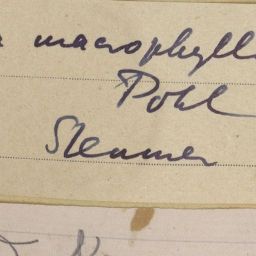 a macrophylla
Pohl
Sleumer